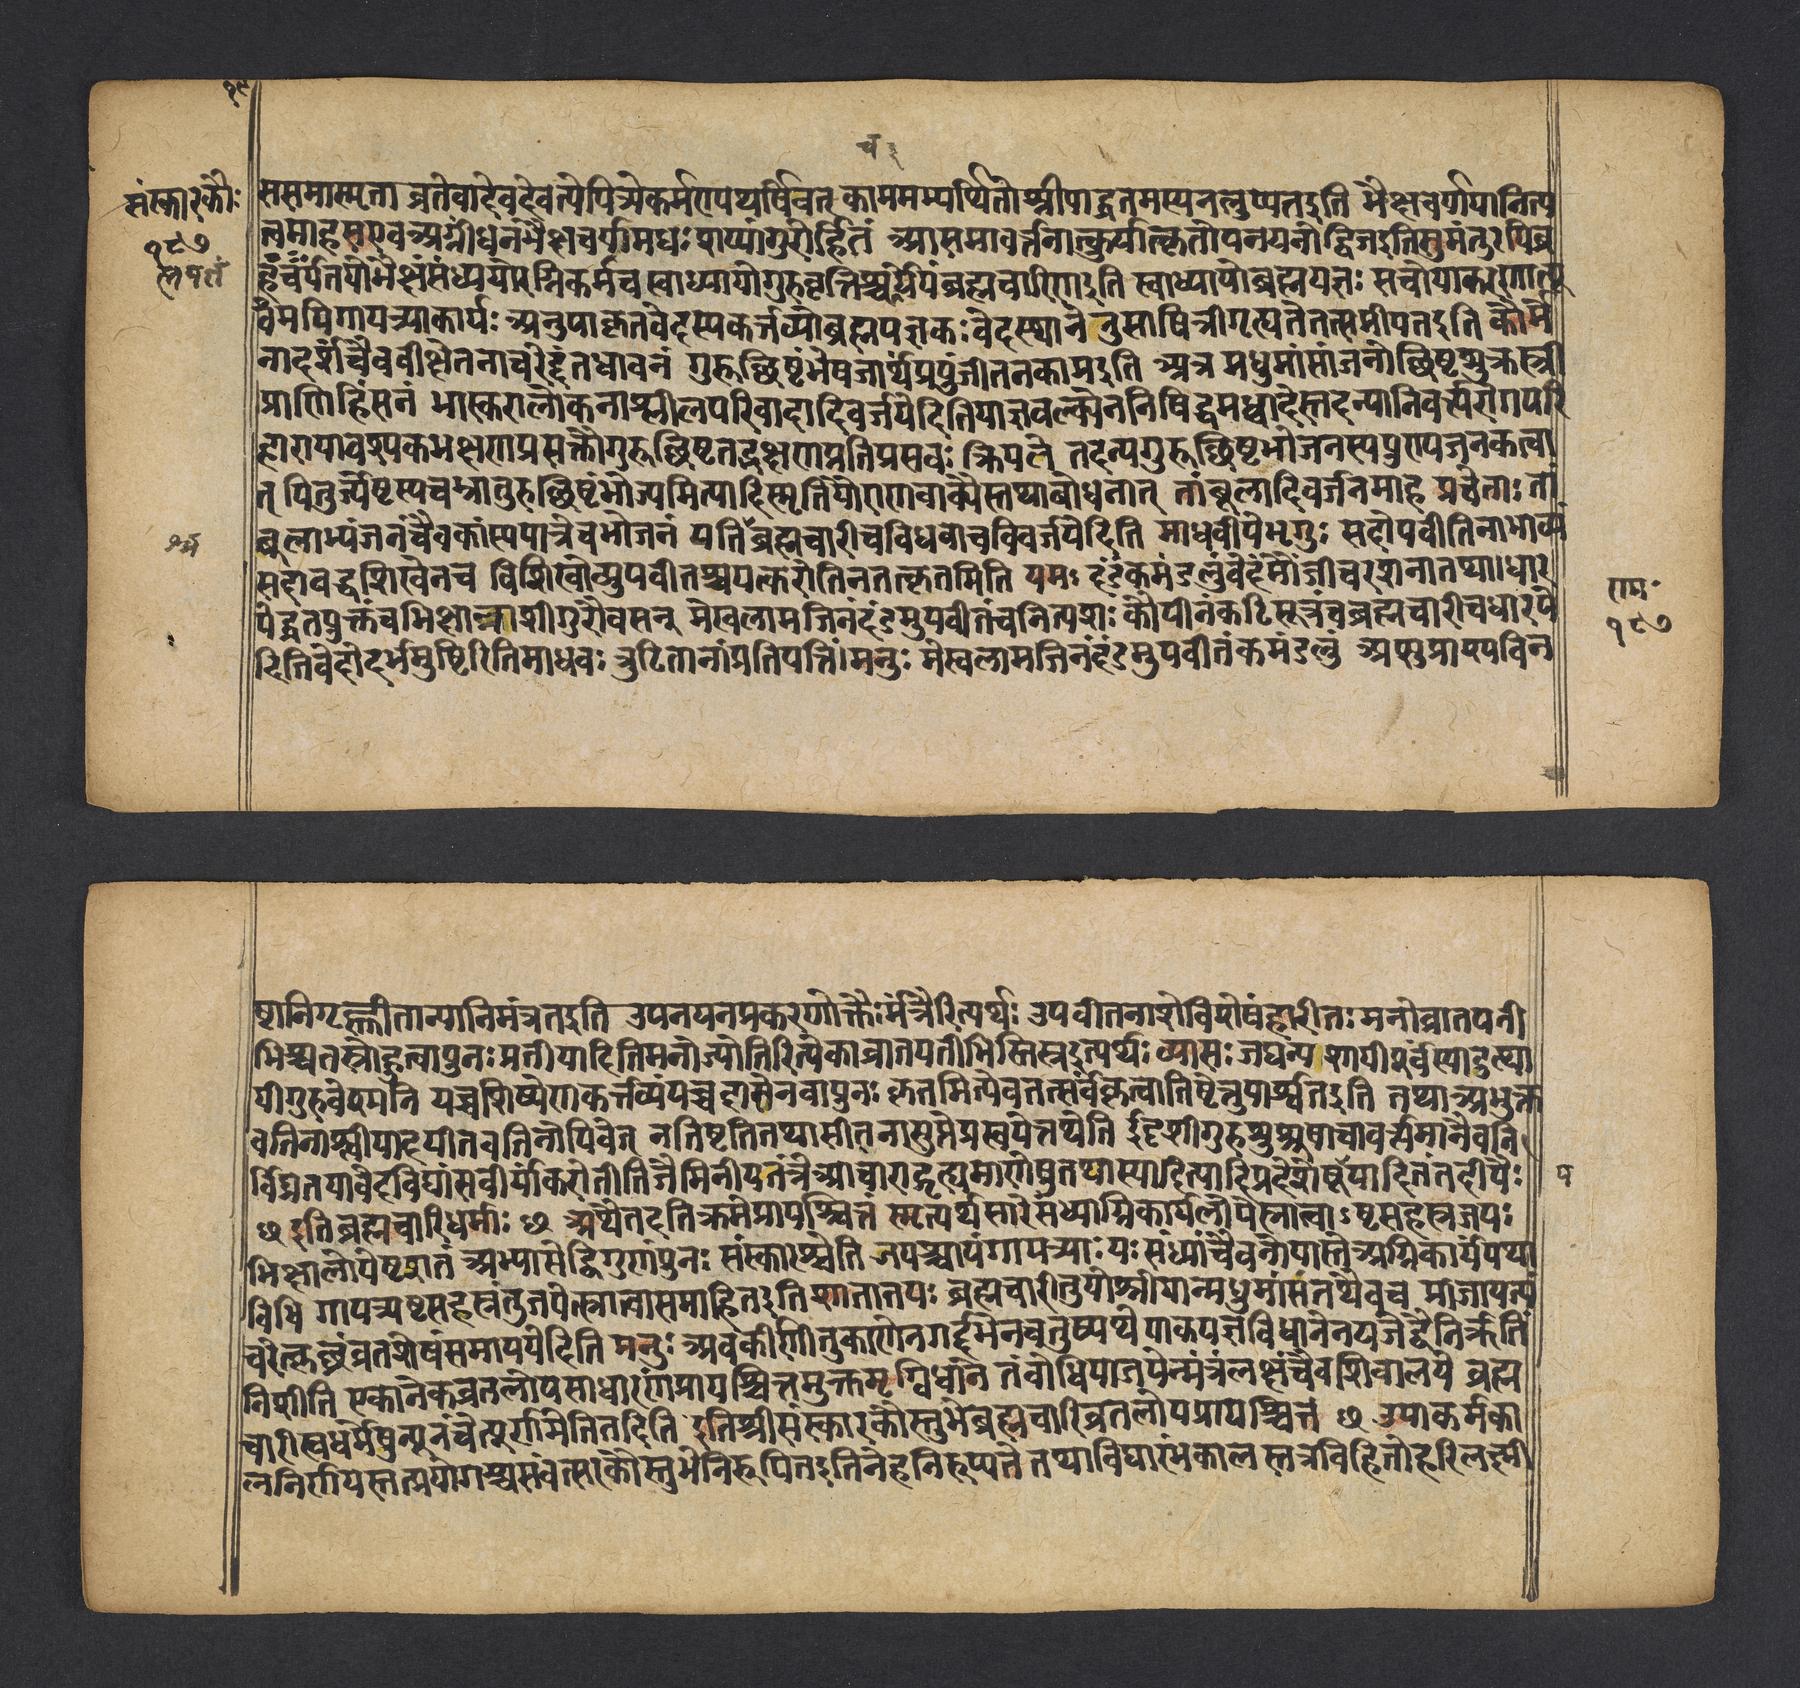 संस्कारकौः
१८७
राम॰
१८७
समास्मृता व्रतेवद्देवदैवत्येपित्र्येकर्मण्यथर्षिवत् काममभ्यर्थितोश्नीयाद्व्रतमस्यनलुप्यतइति भैक्षचर्याया नित्य
त्वमाहसएव अग्नींधनंभैक्षचर्यामधः शय्यांगुरोर्हितं आसमावर्त्तनात्कुर्यात्कृतोपनयनोद्विजइति सुमंतुरपिब्र
स्वाध्यायोब्रह्मयज्ञः सचोपाकरणात्पू
र्वमपिगायत्र्याकार्यः अनुपाकृतवेदस्यकर्त्तव्योब्रह्मयज्ञकः वेदस्थाने तुसावित्रीगृह्यतेतत्समीयतइति कौर्मे
नादर्शंचैववीक्षेतनाचरेद्दंतधावनं गुरूच्छिष्टंभेषजार्थंप्रयुंजीतनकामतइति अत्र मधुमांसांजनोच्छिष्टशुक्तस्त्री
प्राणिहिंसनं भास्करालोकनाश्लीलपरिवादादिवर्जयेदितियाज्ञवल्क्येननिषिद्धमध्वादेस्तदन्यानिवर्त्यरोगपरि
हारायावश्यकभक्षणप्रसक्तौगुरूच्छिष्टतद्भक्षणप्रतिप्रसवः
त् पितुर्ज्येष्टस्यचभ्रातुरुच्छिष्टंभोज्यमित्यादिस्मृति तांबूलादिवर्जनमाह प्रचेताः तां
बूलाभ्यंजनंचैवकांस्यपात्रेचभोजनं यतिर्ब्रह्मचारीचविधवाचविवर्जयेदिति माधवीयेभृगुः सदोपवीतिनाभाव्यं
सदाबद्धशिखेनच विशिखोव्युपवीतश्चयत्करोतिनतत्कृतमिति यमः दंडंकमंडलुंवेदंमौंजींचरशनांतथा।धार
येद्ब्रतयुक्तंचभिक्षान्नाशीगुरौवसन् मेखलामजिनंदंडमुपवीतंचनित्यशः कौपीनंकटिसूत्रंचब्रह्मचारीचधारये
दितिवेदोदर्भमुष्टिरितिमाधवः त्रुटितानांप्रतिपत्तिं।मनुः मेखलामजिनंदंडमुपवीतंकमंडलुं अप्सुप्रास्यविन
ष्टानिगृह्णीतान्यानिमंत्रतइति उपनयनप्रकरणोक्तैःमंत्रैरित्यर्थः उपवीतनाशेविशेषंहारीतः मनोव्रातपती
भिश्चतस्रोहुत्वापुनः प्रतीयादितिमनोज्योतिरित्येकाव्रातपतीभिस्तिस्रइत्यर्थः व्यासः जघन्यशायीपूर्वंस्यादुत्था
यीगुरुवेश्मनि यच्चशिष्येणकर्त्तव्यंयच्चदासेनवापुनः कृतमित्येवतत्सर्वंकृत्वातिष्टेत्तुपार्श्वतइति तथा अभुक्त
वतिनाश्नीयादपीतवतिनोपिबेत् नतिष्टतितथासीतनासुप्तेप्रस्वपेत्तथेति
छ इतिब्रह्मचारिधर्माः छ अथैतदतिक्रमेप्रायश्चित्तं स्मृत्यर्थसारेसंध्याग्निकार्यलोपेस्नात्वाऽष्टसहस्रजपः
भिक्षालोपेष्टशतं अभ्यासेद्विगुणंपुनः संस्कारश्चेति जपश्चायंगायत्र्याः यः संध्यांचैवनोपास्तेअग्निकार्यंयथा
विधि गायत्र्यष्टसहस्रंतुजपेत्स्नात्वासमाहितइतिशातातपः ब्रह्मचारीतुयोश्नीयान्मधुमांसंतथैवच प्राजापत्यं
चरेत्कृच्छ्रंव्रतशेषंसमापयेदिति मनुः अवकीर्णीतुकाणेनगर्दभेनचतुष्पथे पाकयज्ञविधानेनयजेद्वैनिर्ऋतिं
निशीति एकानेकव्रतलोपसाधारणंप्रायश्चित्तमुक्तमृग्विधाने तंवोधियाजपेन्मंत्रंलक्षंचैवशिवालये ब्रह्म
चारीस्वधर्मेषुन्यूनंचेत्पूर्णमेतितदिति इतिश्रीसंस्कारकौस्तुभेब्रह्मचारिव्रतलोपप्रायश्चित्तं छ उपाकर्मका
लनिर्णयस्तत्प्रयोगश्चसंवत्सरकौस्तुभेनिरूपितइतिनेहनिरूप्यते तथाविद्यारंभकाल स्तत्रविहितोहरिलक्ष्मी